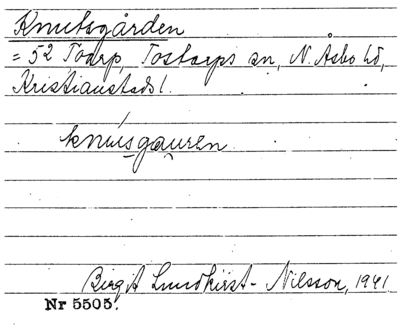 Knutsgården
= 52 Toarp, Tostarps sn, N. Åsbo hd,
Kristianstads l.
knusgauren
Birgit Lundkvist-Nilsson, 1941
Nr 5505.